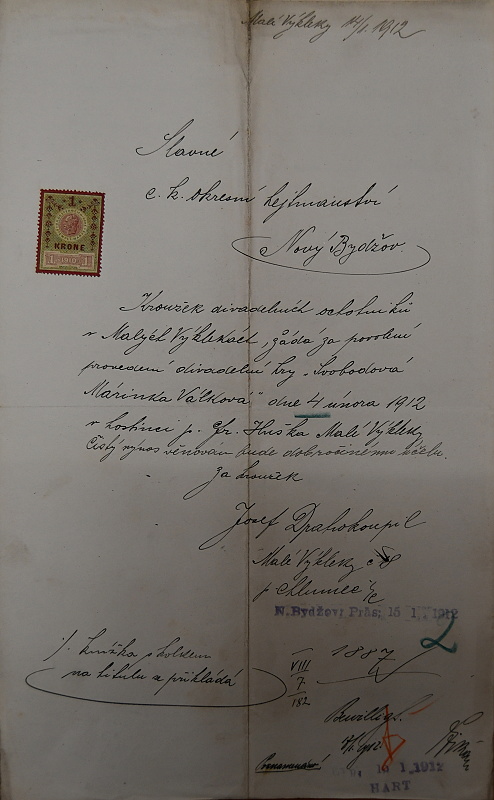 Malé Výkleky 14/1. 1912
Slavné
c. k. okresní hejtmanství
Nový Bydžov.
1
KRONE
1 1910 1
Kroužek divadelních ochotníků
v Malých Výklekách, žádá za povolení
provedení divadelní hry „Svobodová
Márinka Válková" dne 4 února 1912
v hostinci p. Fr. Huška Malé Výkleky
Čistý výnos věnován bude dobročinnému účelu.
Za kroužek
Josef Drahokoupil
Malé Výkleky č
p Chlumec n/c
N. Bydžov; Präs; 15 1. 1912
2
1887
VIII
7
182
⁒ knížka s kolkem
na titulu se přikládá
Bewilligt.
10 1, 1912
HART